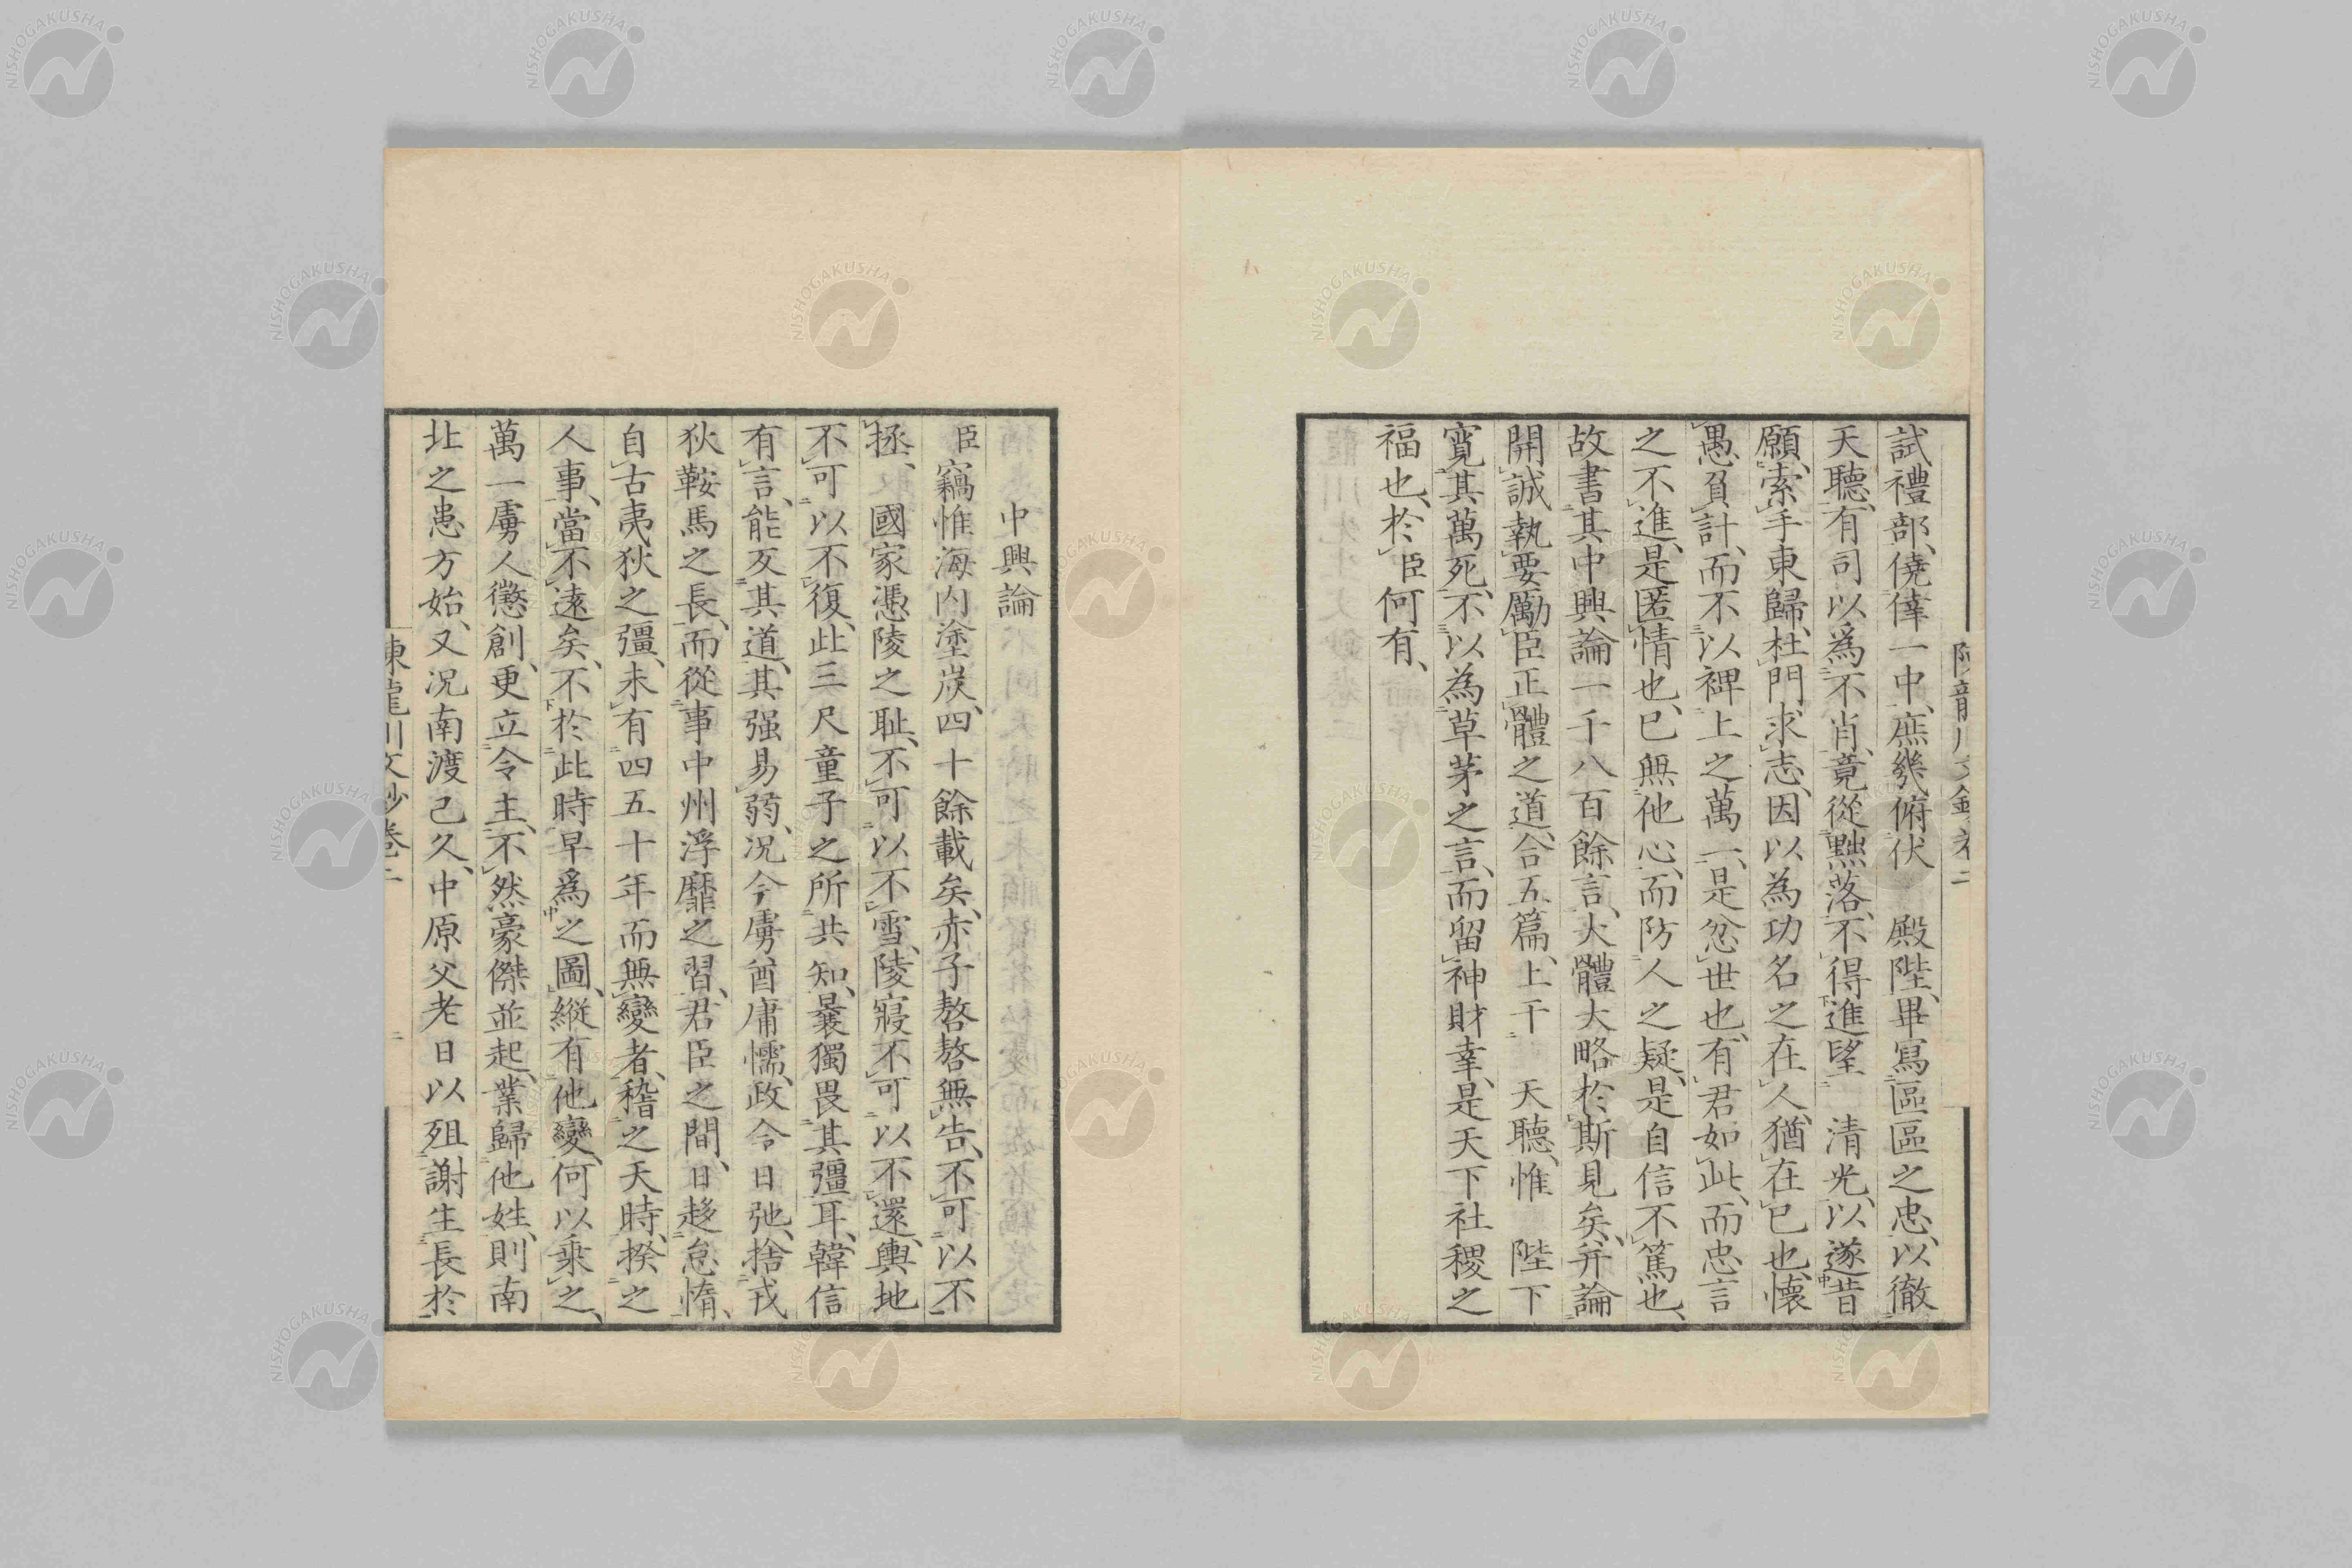 試禮部、僥倖一中、庶幾俯伏　殿陛、畢寫區區之忠、以徹
天聽、有司以爲不肖、竟從黜落、不得進望　清光、以遂昔
願、索手東歸、杜門求志、因以為功名之在人、猶在已也、懷
愚負計、而不以裨上之萬一、是忿世也、有君如此、而忠言
之不進、是匿情也、已無他心、而防人之疑、是自信不篤也、
故書其中興論一千八百餘言、大體大略於斯見矣、并論
開誠執要勵臣正體之道、合五篇、上干　天聽、惟　陛下
寛其萬死、不以為草茅之言、而留神財幸、是天下社稷之
福也、於臣何有、
中興論
臣竊惟海内塗炭、四十餘載矣、赤子嗸嗸無告、不可以不
拯、國家憑陵之耻、不可以不雪、陵寢不可以不還、輿地
不可以不復、此三尺童子之所共知、曩獨畏其彊耳、韓信
有言、能反其道、其强易弱、况今虜酋庸懦、政令日弛、捨戎
狄鞍馬之長、而從事中州浮靡之習、君臣之間、日趍怠惰、
自古夷狄之彊、未有四五十年而無變者、稽之天時、揆之
人事、當不遠矣、不於此時早爲之圖、縱有他變、何以乘之、
萬一虜人懲創、更立令主、不然豪傑並起、業歸他姓、則南
北之患方始、又况南渡已久、中原父老日以殂謝、生長於
陳龍川文鈔卷二